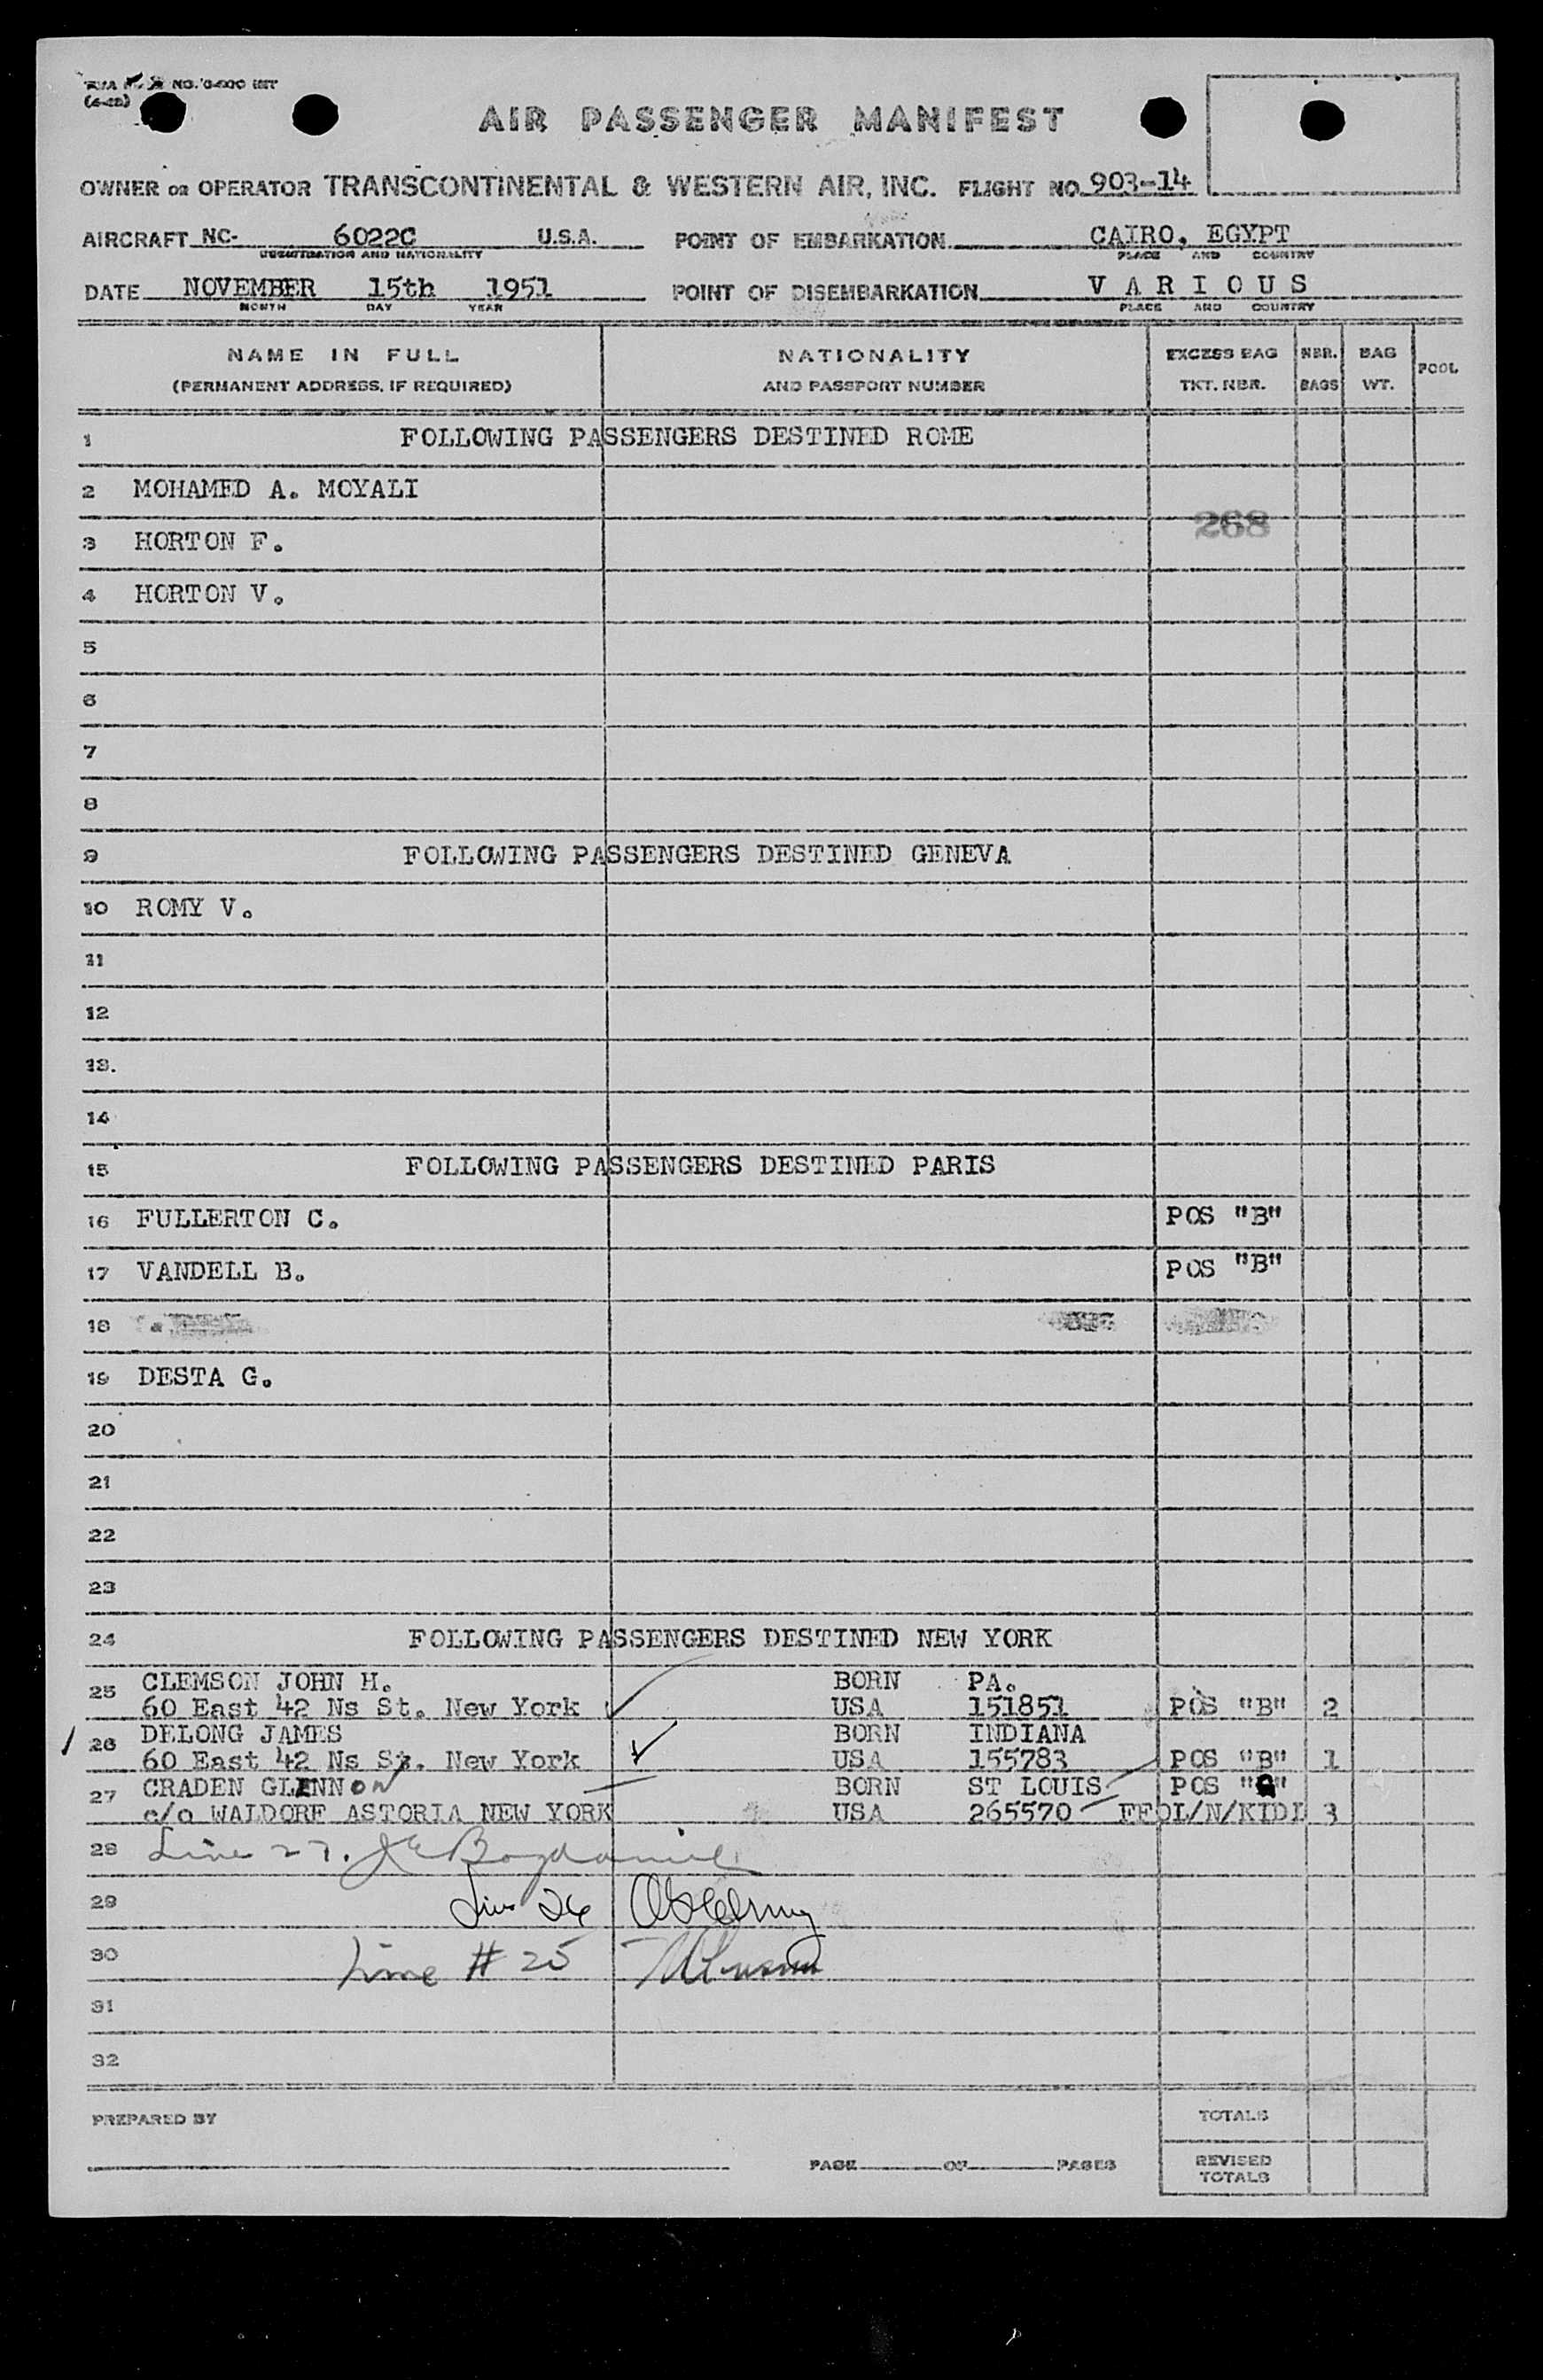 AIR PASSENGER MANIFEST
OWNER OR OPERATOR TRANSCONTINENTAL & WESTERN AIR, INC. FLIGHT NO. 903-14
AIRCRAFT NC- 6022C U.S.A. POINT OF EMBARKATION CAIRO, EGYPT
IDENTIFICATION AND NATIONALITY PLACE AND COUNTRY
DATE NOVEMBER 15th 1951 POINT OF DISEMBARKATION V A R I O U S
MONTH DAY YEAR PLACE AND COUNTRY
NAME IN FULL NATIONALITY EXCESS BAG NBR. BAG POOL
(PERMANENT ADDRESS, IF REQUIRED) AND PASSPORT NUMBER TKT. NBR. BAGS WT.
1 FOLLOWING PASSENGERS DESTINED ROME
2 MOHAMED A. MOYALI
268
3 HORTON F.
4 HORTON V.
5
6
7
8
9 FOLLOWING PASSENGERS DESTINED GENEVA
10 ROMY V.
11
12
13.
14
15 FOLLOWING PASSENGERS DESTINED PARIS
16 FULLERTON C. POS "B"
17 VANDELL B. POS "B"
18
19 DESTA G.
20
21
22
23
24 FOLLOWING PASSENGERS DESTINED NEW YORK
25 CLEMSON JOHN H. BORN PA.
60 East 42 Ns St. New York USA 151851 POS "B" 2
26 DELONG JAMES BORN INDIANA
60 East 42 Ns St. New York USA 155783 POS "B" 1
27 CRADEN GLENNON BORN ST LOUIS POS
c/o WALDORF ASTORIA NEW YORK USA 265570 3
28 Line 27.
29 Line 26
30 Line # 25
31
32
PREPARED BY TOTALS
PAGE OF PAGES REVISED TOTALS